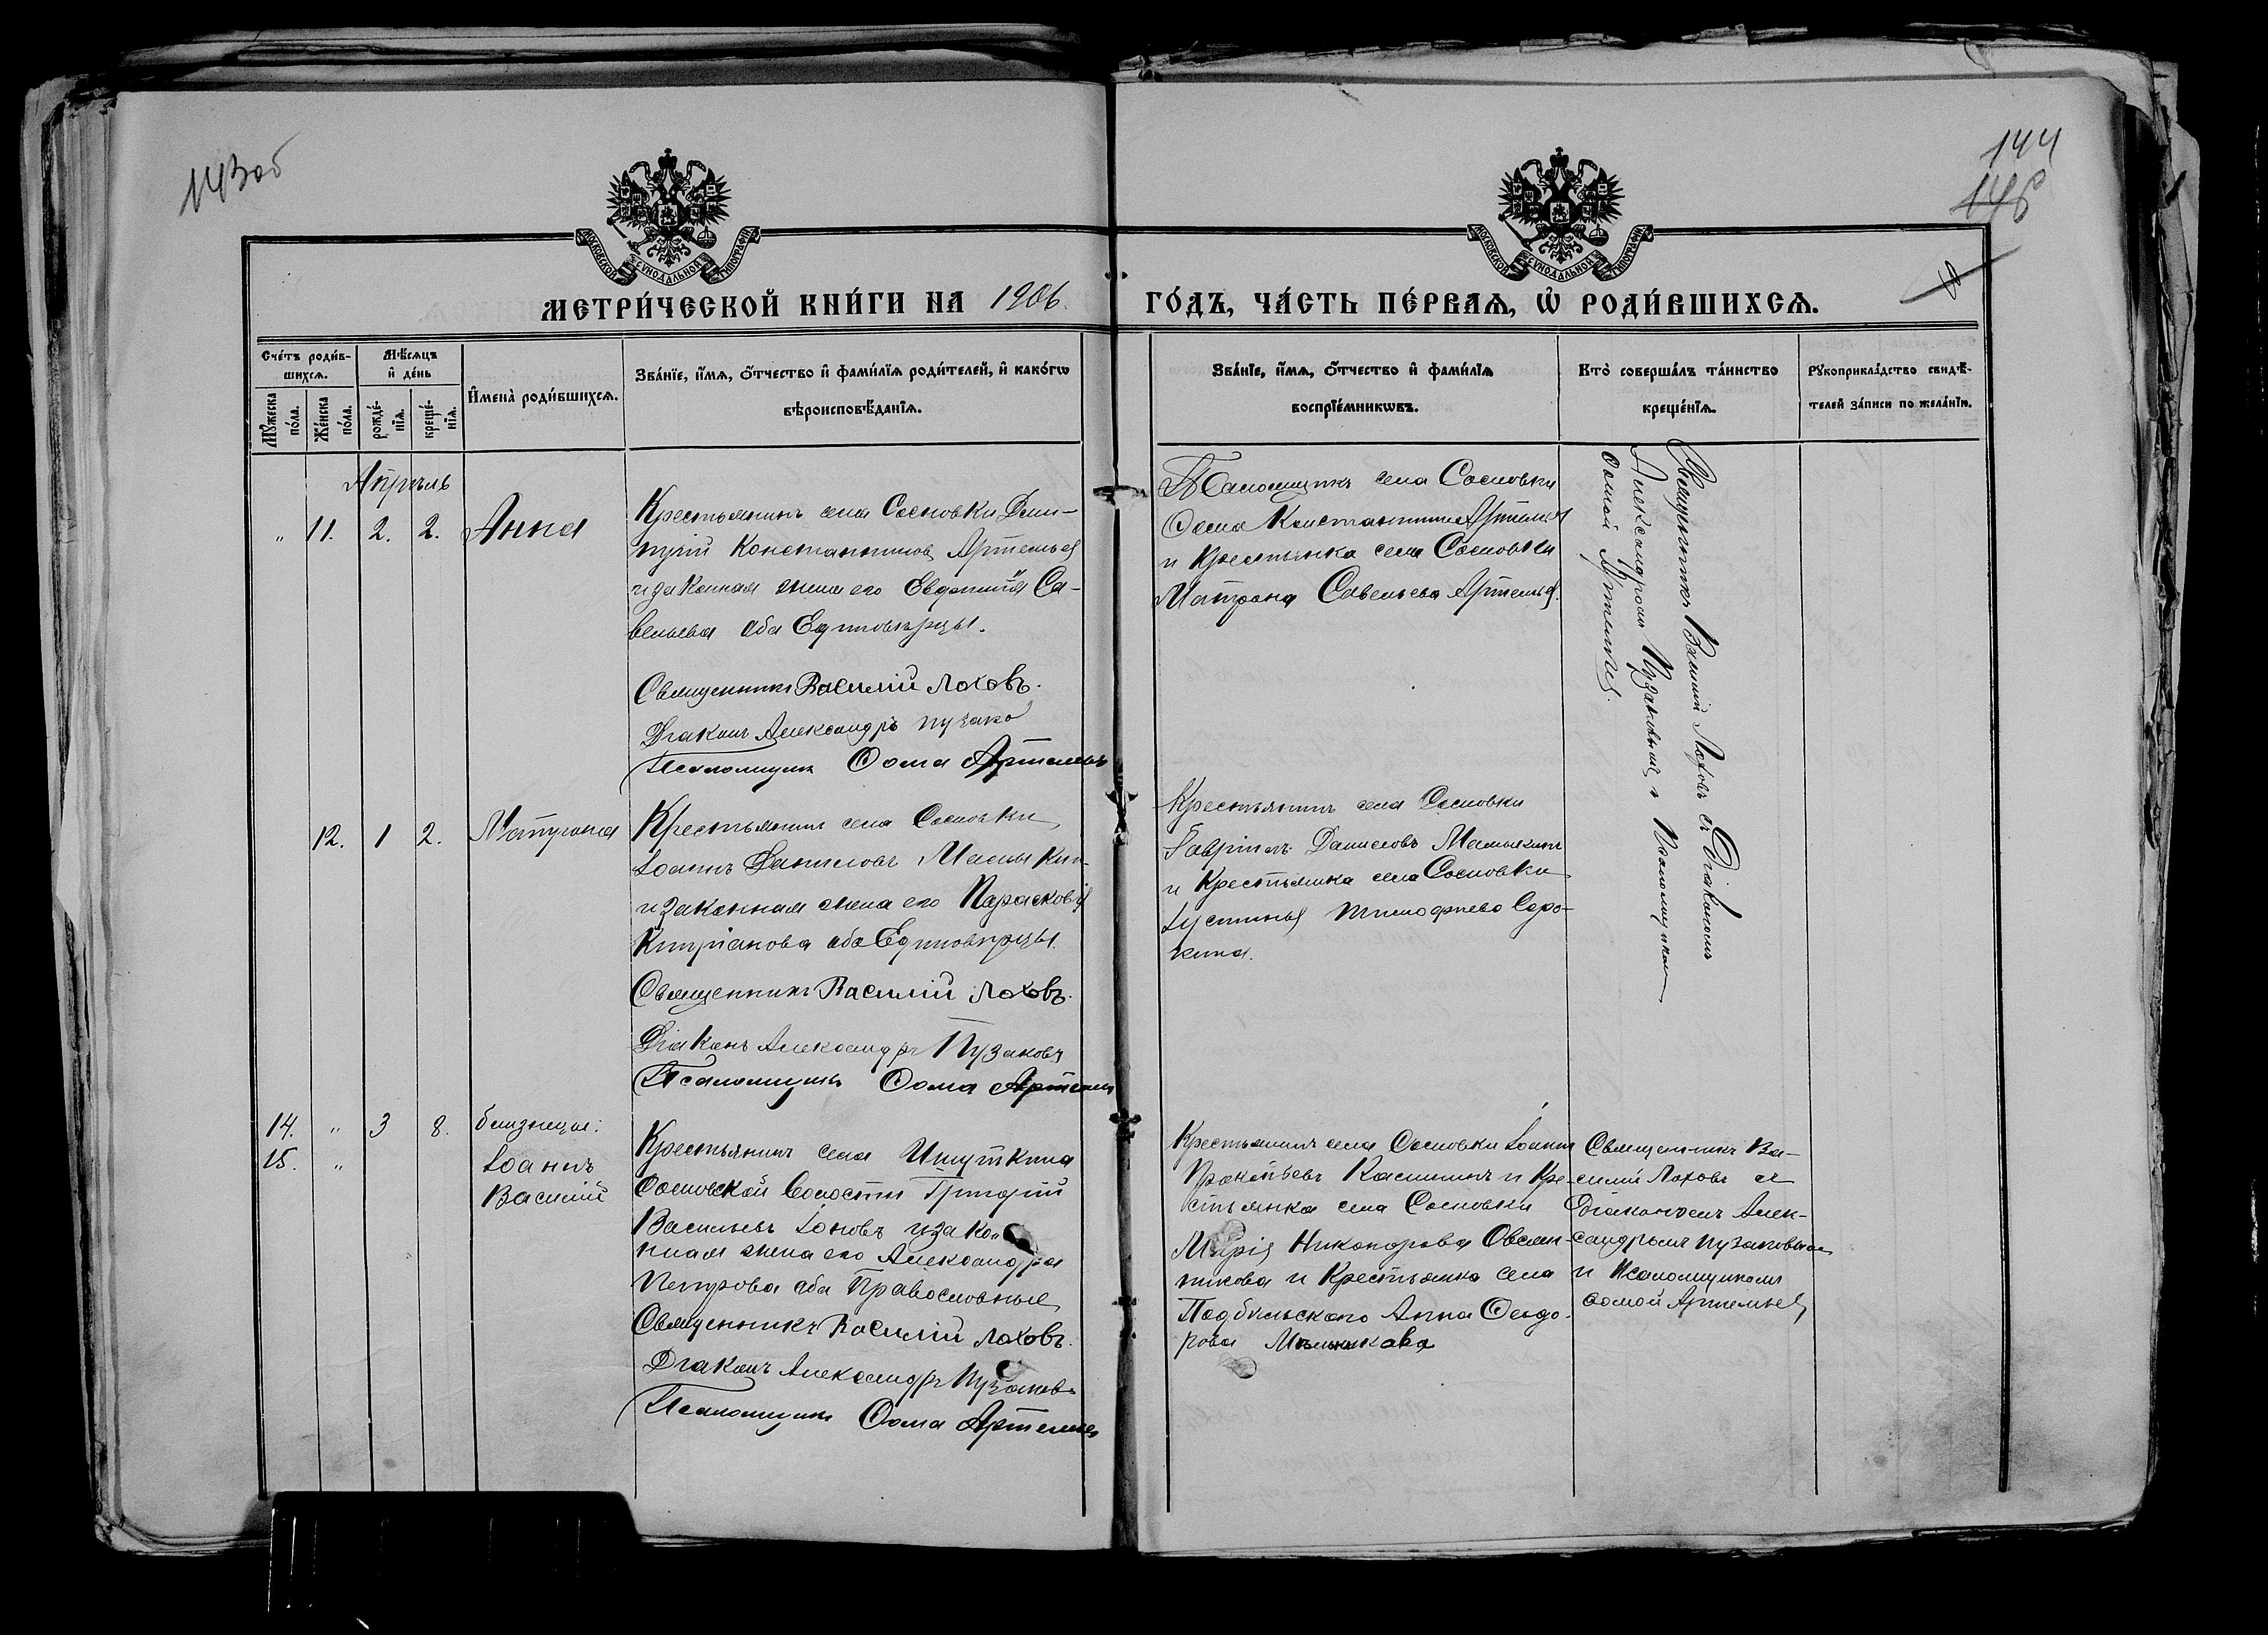 143об
144
146
МОСКОВСКОЙ СѴНОДАЛЬНОЙ ТИПОГРАФІИ
МОСКОВСКОЙ СѴНОДАЛЬНОЙ ТИПОГРАФІИ
МЕТРИ́ЧЕСКОЙ КНИ́ГИ НА 1906.
ГО́ДЪ, ЧА́СТЬ ПЕ́РВАѦ, Ѡ҆ РОДИ́ВШИХСѦ.
Сче́тъ роди́в-
шихсѧ.
Мѣ́сѧцъ
и҆ де́нь
Мꙋ́жеска
по́ла.
Же́нска
по́ла.
рожде́-
нїѧ.
креще́-
нїѧ.
И҆мена̀ роди́вшихсѧ.
Зва́нїе, и҆́мѧ, ѻ҆́тчество и҆ фами́лїѧ роди́телей, и҆ како́гѡ
вѣроисповѣ́данїѧ.
Зва́нїе, и҆́мѧ, ѻ҆́тчество и҆ фами́лїѧ
воспрїе́мникѡвъ.
Кто̀ соверша́лъ та́инство
креще́нїѧ.
Рꙋкоприкла́дство свидѣ́-
телей за́писи по жела́нїю.
Апрѣль
" 11. 2. 2. Анна
Крестьянинъ села Сосновки Дми-
трій Константиновъ Артемьев
и законная жена его Евдокія Са-
вельева оба Единовѣрцы.
Священникъ Василій Лоховъ.
Діаконъ Александръ Пузако
Псаломщикъ Ѳома Артемьевъ
Псаломщикъ села Сосновки
Ѳома Константинов Артемьев
и Крестьянка села Сосновки
Матрона Савельева Артемьев.
Священникъ Василій Лоховъ съ Діакономъ
Александромъ Пузаковымъ и Псаломщикомъ
Ѳомой Артемьев.
12. 1 2. Матрона
Крестьянинъ села Сосновки
Іоаннъ Даниловъ Мамыкин
и законная жена его Парасковія
Кипріанова оба Единовѣрцы.
Священникъ Василій Лоховъ.
Діаконъ Александръ Пузаковъ
Псаломщикъ Ѳома Артемьев
Крестьянинъ села Сосновки
Гавріилъ Даниловъ Мамыкинъ
и Крестьянка села Сосновки
Іустинья Тимофѣева Соро-
кина.
14. " 3 8. близнецы:
15. " Іоаннъ
Василій
Крестьянинъ села Ишуткина
Сосновской волости Григорій
Васильевъ Іоновъ и закон
нная жена его Александра
Петрова оба Православные
Священникъ Василій Лоховъ.
Діаконъ Александръ Пузаков
Псаломщикъ Ѳома Артемьев
Крестьянинъ села Сосновки Іоаннъ
Прокопьевъ Калининъ и Кре-
стьянка села Сосновки
Марія Никонорова Овсян-
никова и Крестьянка села
Подбѣльскаго Анна Ѳеодо-
рова Мѣльникова
Священникъ Ва-
силій Лоховъ съ
Діакономъ Алек-
сандромъ Пузаковым
и Псаломщикомъ
Ѳомой Артемьев